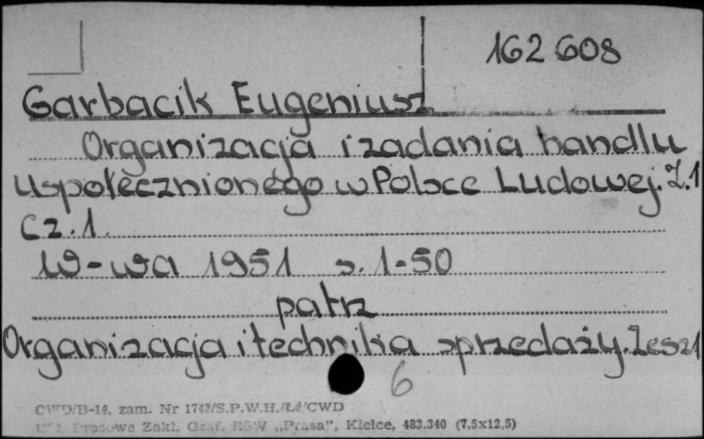 162 608
Garbacik Eugeniusz
Organizacja i zadania handlu
uspołecznionego w Polsce Ludowej. Z.1
Cz.1.
W-wa 1951 s. 1-50
patrz
Organizacja i technika sprzedaży. Zesz 1
6
CWD/B-14, zam. Nr 1742/S.P.W.H./Ł4/CWD
Prasowe Zakł. Graf. RSW „Prasa”, Kielce, 483.340 (7,5x12,5)